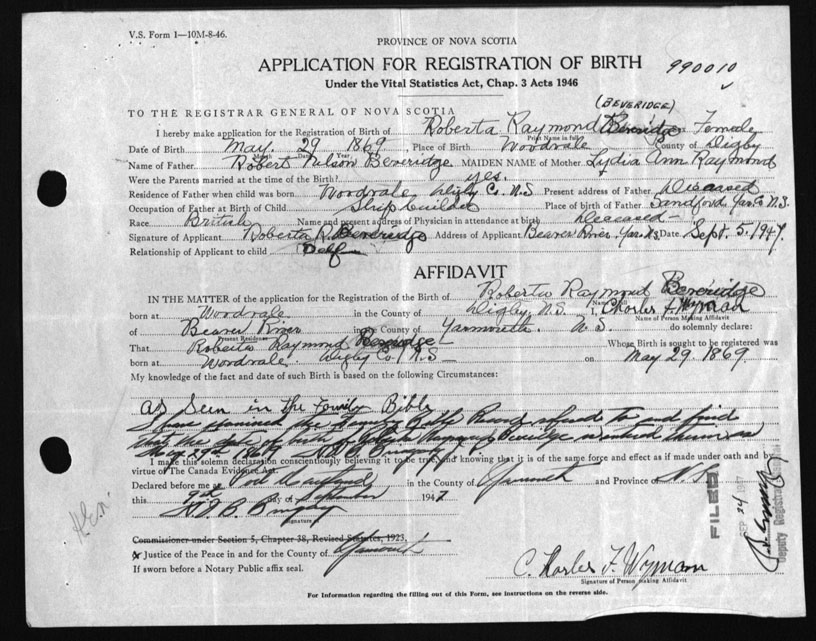 V.S. Form 1—10M-8-46.
PROVINCE OF NOVA SCOTIA
APPLICATION FOR REGISTRATION OF BIRTH 990010
Under the Vital Statistics Act, Chap. 3 Acts 1946
(BEVERIDGE)
TO THE REGISTRAR GENERAL OF NOVA SCOTIA
I hereby make application for the Registration of Birth of Roberta Raymond Beveridge Female
Print Name in full
Date of Birth May 29 1869, Place of Birth Woodvale County of Digby
Month Date Year
Name of Father Robert Nelson Beveridge MAIDEN NAME of Mother Lydia Ann Raymond
Were the Parents married at the time of the Birth? yes.
Residence of Father when child was born Woodvale Digby Co. N.S Present address of Father Deceased
Occupation of Father at Birth of Child Shipbuilder Place of birth of Father Sandford Yar. Co N.S.
Race British Name and present address of Physician in attendance at birth Deceased
Signature of Applicant Roberta R. Beveridge Address of Applicant Beaver River Yar. N.S. Date Sept. 5. 1947.
Relationship of Applicant to child Self
AFFIDAVIT
IN THE MATTER of the application for the Registration of Birth of Roberta Raymond Beveridge
born at Woodvale in the County of Digby, N.S. I, Charles F. Wyman
Name of Person Making Affidavit
of Beaver River in the County of Yarmouth N S do solemnly declare:
Present Residence
That Roberta Raymond Beveridge Whose Birth is sought to be registered was
born at Woodvale Digby Co. N.S on May 29. 1869.
My knowledge of the fact and date of such Birth is based on the following Circumstances:
as Seen in the Family Bible
I have examined the refered to and find
that the date of birth of Beveridge is entered therein as
May 29th 1869
I make this solemn declaration conscientiously believing it to be true, and knowing that it is of the same force and effect as if made under oath and by
virtue of The Canada Evidence Act.
Declared before me at Port Maitland in the County of Yarmouth and Province of N.S.
this 9th day of September 1947
Signature
Commissioner under Section 5, Chapter 38, Revised Statutes, 1923.
x Justice of the Peace in and for the County of Yarmouth
If sworn before a Notary Public affix seal.
Charles F. Wyman
Signature of Person making Affidavit
For Information regarding the filling out of this Form, see instructions on the reverse side.
FILED
SEP 24 1947
Deputy Registrar General